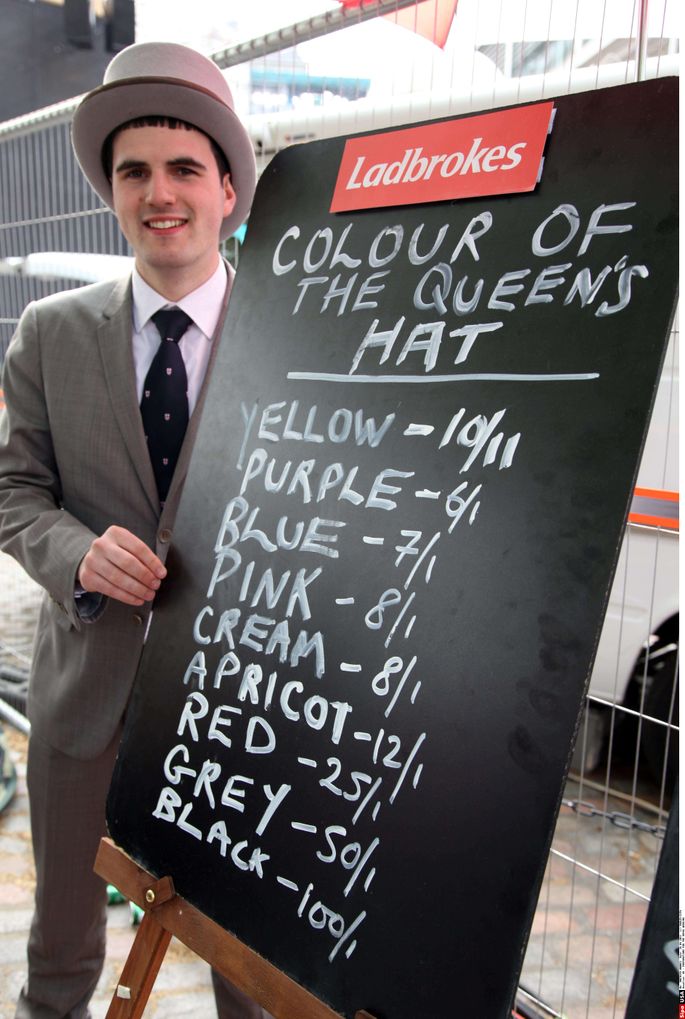 Ladbrokes
COLOUR OF
THE QUEEN'S
HAT
YELLOW - 10/11
PURPLE - 6/1
BLUE - 7/1
PINK - 8/1
CREAM - 8/1
APRICOT - 12/1
RED - 25/1
GREY - 50/1
BLACK - 100/1
Sipa USA